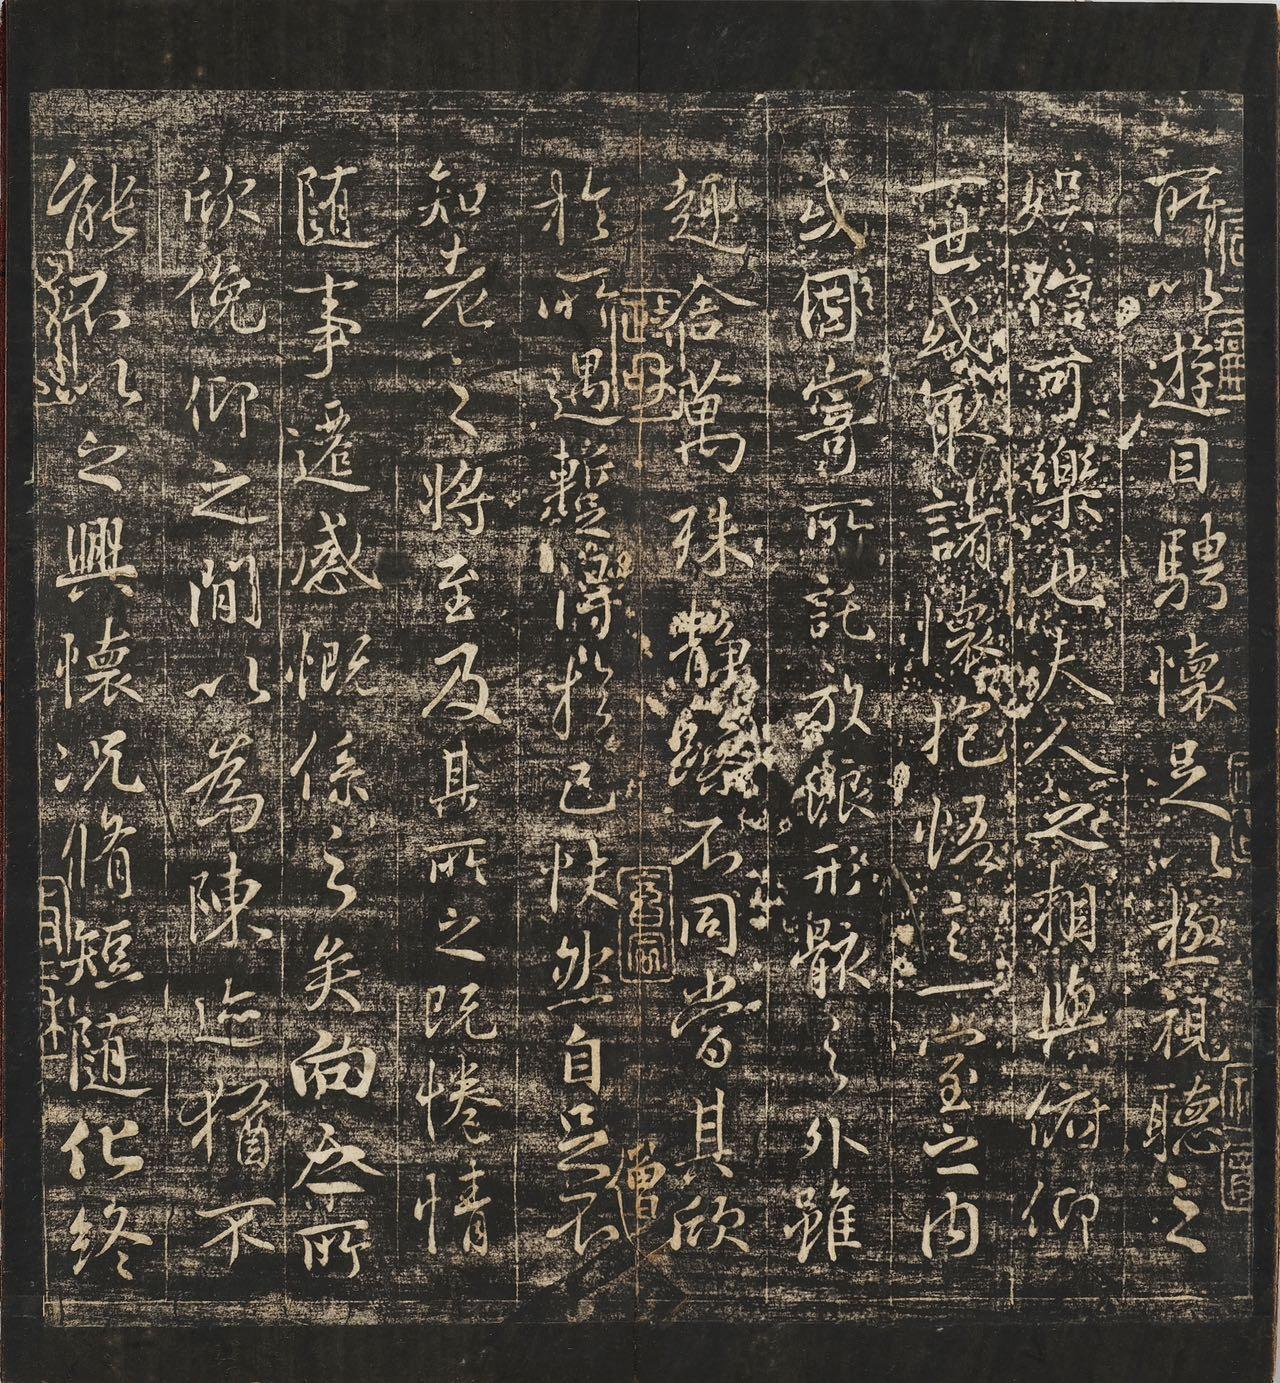 所以遊目騁懷足以極視聽之
娛信可樂也夫人之相與俯仰
一世或取諸懷抱悟言一室之內
或因寄所託放浪形骸之外雖
趣舍萬殊靜躁不同當其欣
於所遇暫得於己怏然自足不
知老之將至及其所之既惓情
隨事遷感慨係之矣向之所
欣俛仰之間以為陳迹猶不
能不以之興懷況脩短隨化終